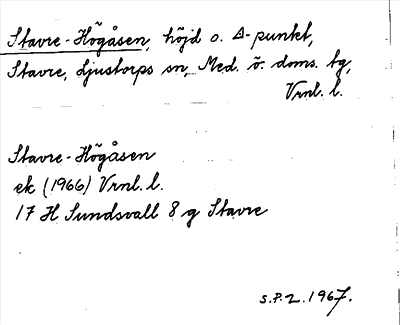 Stavre-Högåsen, höjd o. Δ-punkt,
Stavre, Ljustorps sn, Med. ö. doms. tg,
Vrnl. l.
Stavre-Högåsen
ek (1966) Vrnl. l.
17 H Sundsvall 8 g Stavre
S.P.2.1967.